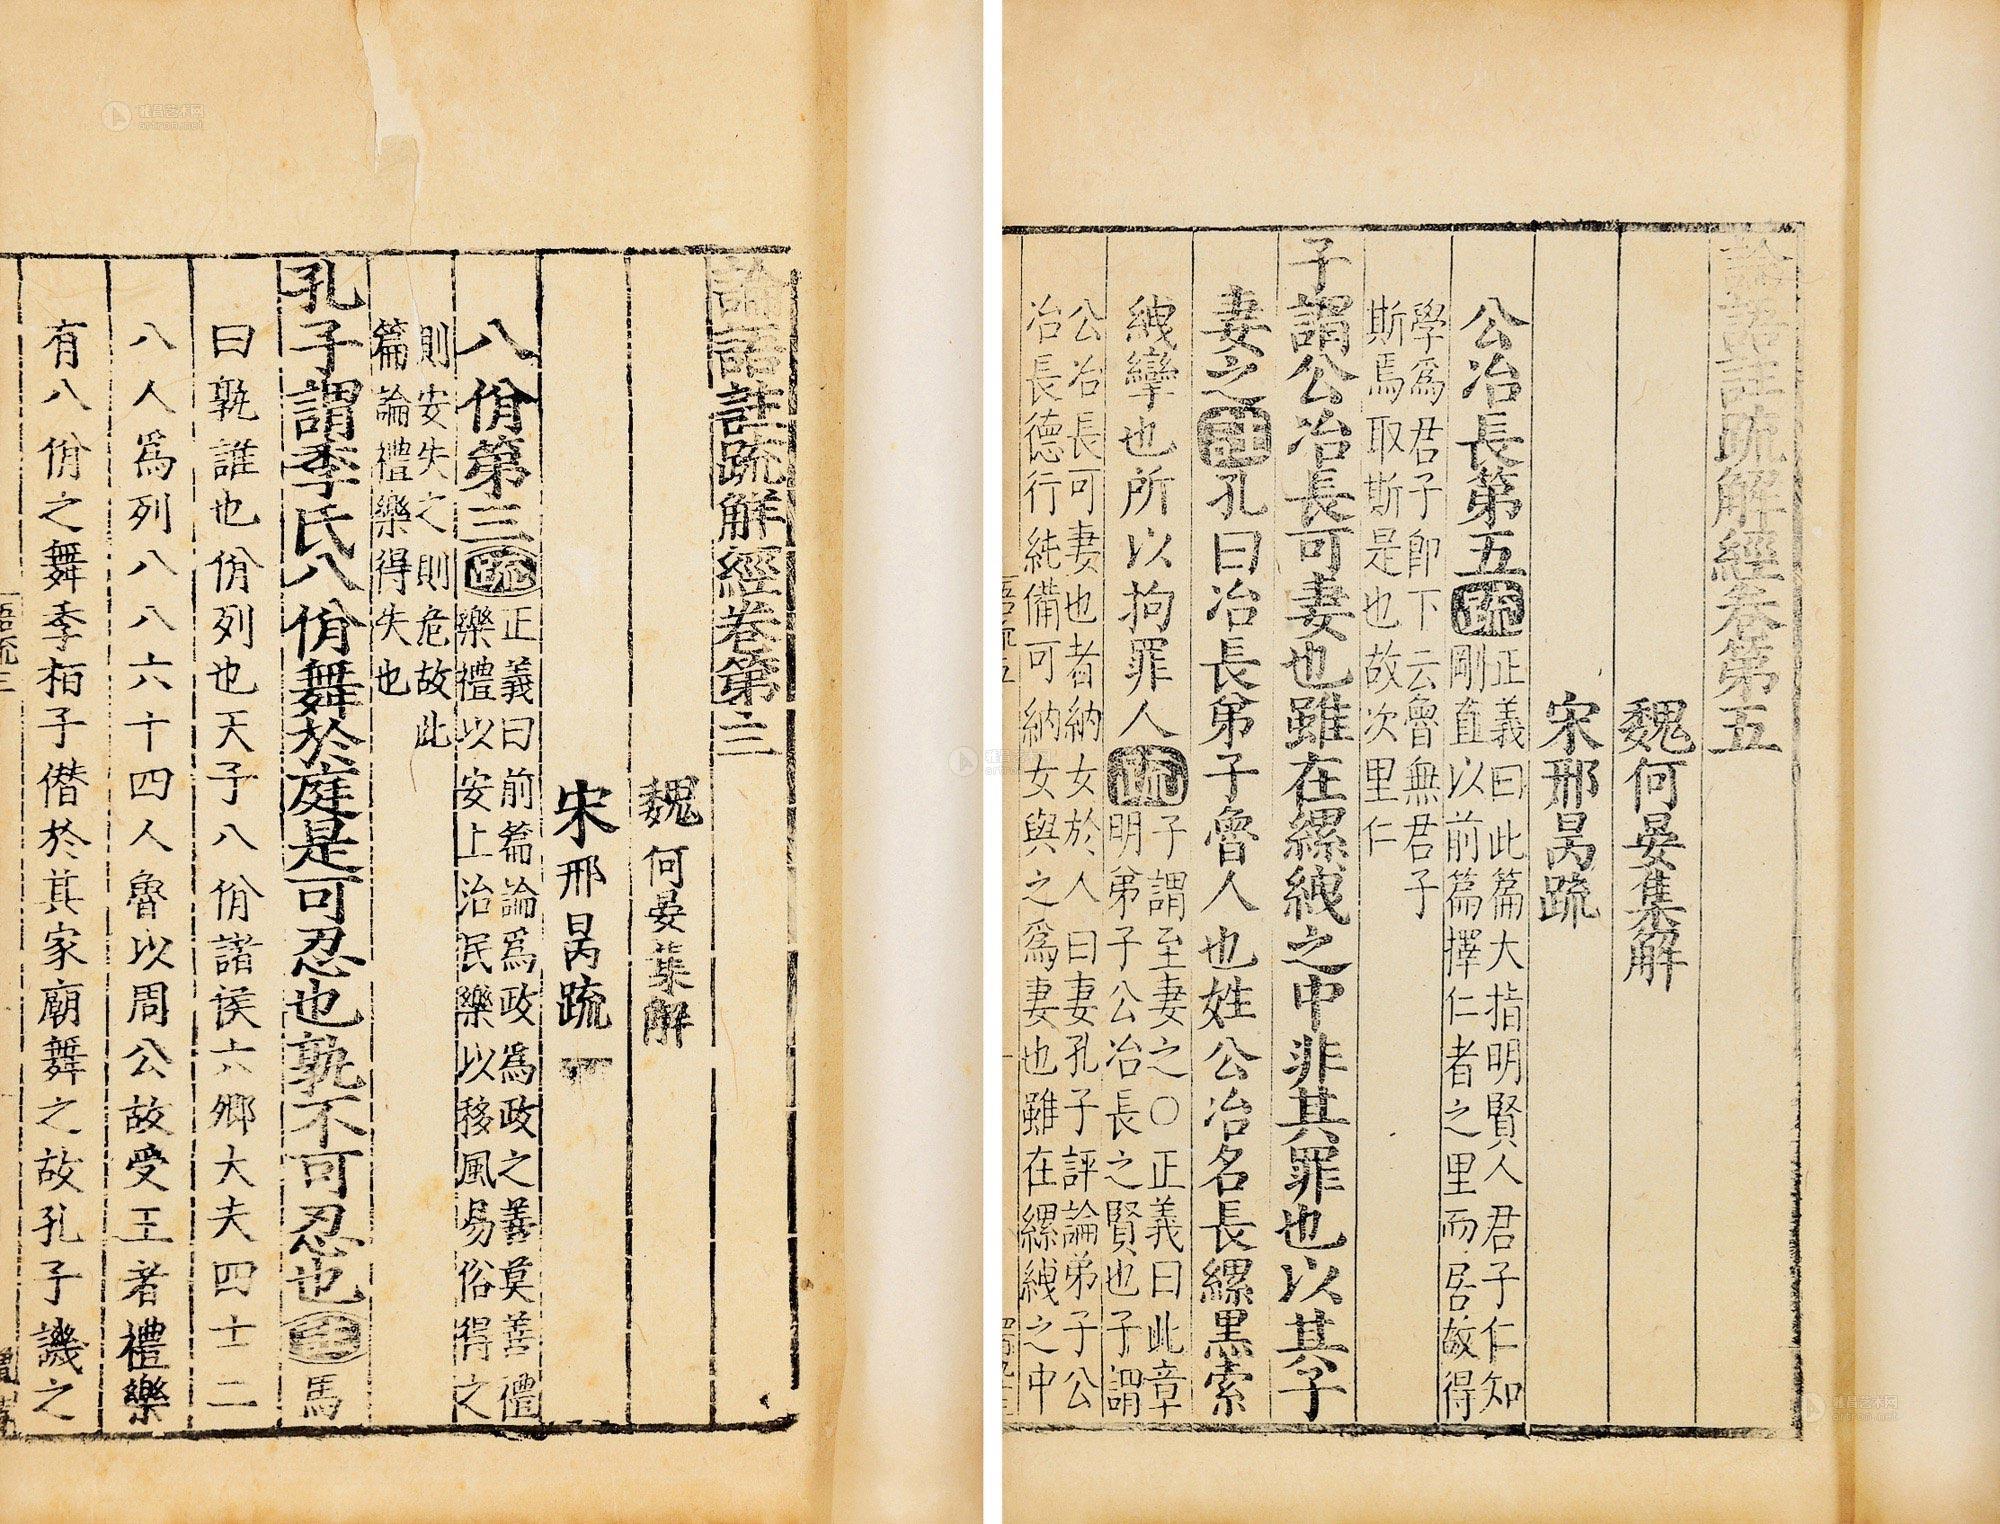 論語註疏解經卷第五
魏何晏集解
宋邢昺疏
公冶長第五疏正義曰此篇大指明賢人君子仁知
剛直以前篇擇仁者之里而居故得
學爲君子卽下云魯無君子
斯焉取斯是也故次里仁
子謂公冶長可妻也雖在縲絏之中非其罪也以其子
妻之註孔曰冶長弟子魯人也姓公冶名長縲黑索
絏攣也所以拘罪人疏子謂至妻之〇正義曰此章
明弟子公冶長之賢也子謂
公冶長可妻也者納女於人曰妻孔子評論弟子公
冶長德行純備可納女與之爲妻也雖在縲絏之中
論語註疏解經卷第三
魏何晏集解
宋邢昺疏
八佾第三疏正義曰前篇論爲政爲政之善莫善禮
樂禮以安上治民樂以移風易俗得之
則安失之則危故此
篇論禮樂得失也
孔子謂季氏八佾舞於庭是可忍也孰不可忍也註馬
曰孰誰也佾列也天子八佾諸侯六卿大夫四士二
八人爲列八八六十四人魯以周公故受王者禮樂
有八佾之舞季栢子僣於其家廟舞之故孔子譏之
語疏三
雅昌艺术网
artron.net